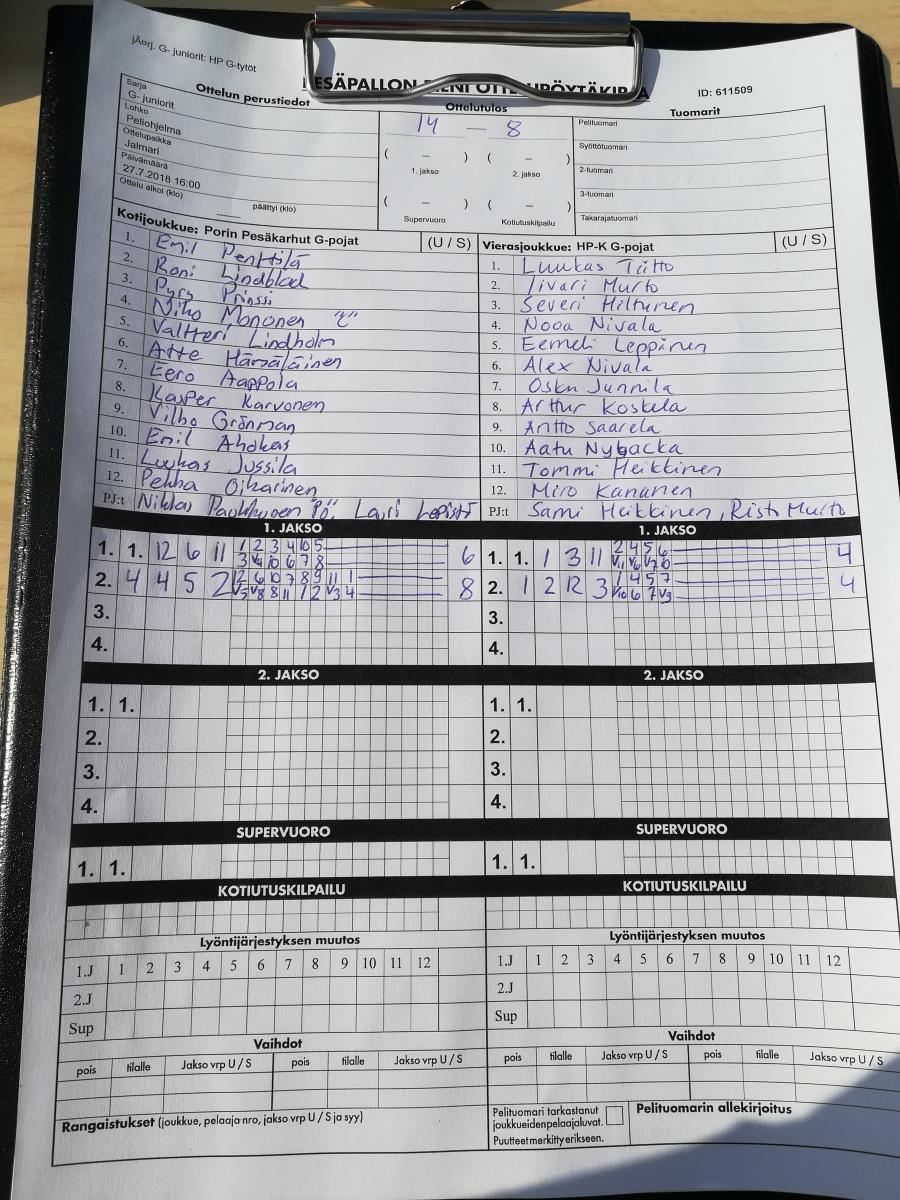 jÄ¤rj. G- juniorit: HP G-tytöt
ID: 611509
Ottelun perustiedot
Sarja
G- juniorit
Lohko
Peliohjelma
Ottelupaikka
Jalmari
Päivämäärä
27.7.2018 16:00
Ottelu alkoi (klo) päättyi (klo)
Ottelutulos
14 – 8
( – ) ( – )
1. jakso 2. jakso
( – ) ( – )
Supervuoro Kotiutuskilpailu
Tuomarit
Pelituomari
Syöttötuomari
2-tuomari
3-tuomari
Takarajatuomari
Kotijoukkue: Porin Pesäkarhut G-pojat (U / S)
1. Emil Penttilä
2. Roni Lindblad
3. Pyry Prinssi
4. Niko Mononen
5. Valtteri Lindholm
6. Atte Hämäläinen
7. Eero Aappola
8. Kasper Karvonen
9. Vilho Grönman
10. Emil Ahokas
11. Luukas Jussila
12. Pekka Oikarinen
PJ:t Niklas Lauri
Vierasjoukkue: HP-K G-pojat (U / S)
1. Luukas Tiitto
2. Iivari Murto
3. Severi Hiltunen
4. Nooa Nivala
5. Eemeli Leppinen
6. Alex Nivala
7. Osku Junnila
8. Arttur Koskela
9. Antto Saarela
10. Aatu Nybacka
11. Tommi Heikkinen
12. Miro Kananen
PJ:t Sami Heikkinen, Risto Murto
1. JAKSO
1. 1. 12 6 11 1 2 3 4 10 5 6
3 V9 10 6 7 8
2. 4 4 5 2 12 6 10 7 8 9 11 1 8
V5 V8 8 11 1 2 V3 4
3.
4.
1. JAKSO
1. 1. 1 3 11 2 4 5 6 4
V11 V6 V7 10
2. 1 2 12 3 1 4 5 7 4
V10 6 7 V9
3.
4.
2. JAKSO
1. 1.
2.
3.
4.
2. JAKSO
1. 1.
2.
3.
4.
SUPERVUORO
1. 1.
SUPERVUORO
1. 1.
KOTIUTUSKILPAILU
KOTIUTUSKILPAILU
Lyöntijärjestyksen muutos
1.J 1 2 3 4 5 6 7 8 9 10 11 12
2.J
Sup
Lyöntijärjestyksen muutos
1.J 1 2 3 4 5 6 7 8 9 10 11 12
2.J
Sup
Vaihdot
pois tilalle Jakso vrp U / S pois tilalle Jakso vrp U / S
Vaihdot
pois tilalle Jakso vrp U / S pois tilalle Jakso vrp U / S
Rangaistukset (joukkue, pelaaja nro, jakso vrp U / S ja syy)
Pelituomari tarkastanut
joukkueidenpelaajaluvat.
Puutteetmerkittyerikseen.
Pelituomarin allekirjoitus